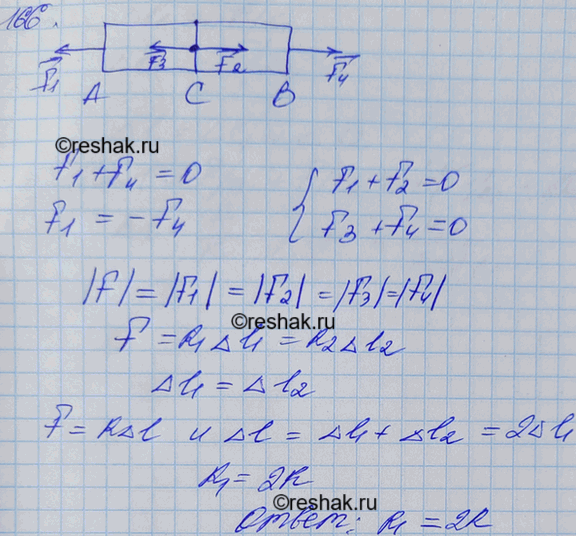 166.
F₁ F₃ F₂ F₄
A C B
©reshak.ru
F₁ + F₄ = 0
F₁ = -F₄
{ F₁ + F₂ = 0
F₃ + F₄ = 0
|F| = |F₁| = |F₂| = |F₃| = |F₄|
©reshak.ru
F = k₁ Δl₁ = k₂ Δl₂
Δl₁ = Δl₂
F = kΔl и Δl = Δl₁ + Δl₂ = 2Δl₁
k₁ = 2k
©reshak.ru
Ответ: k₁ = 2k